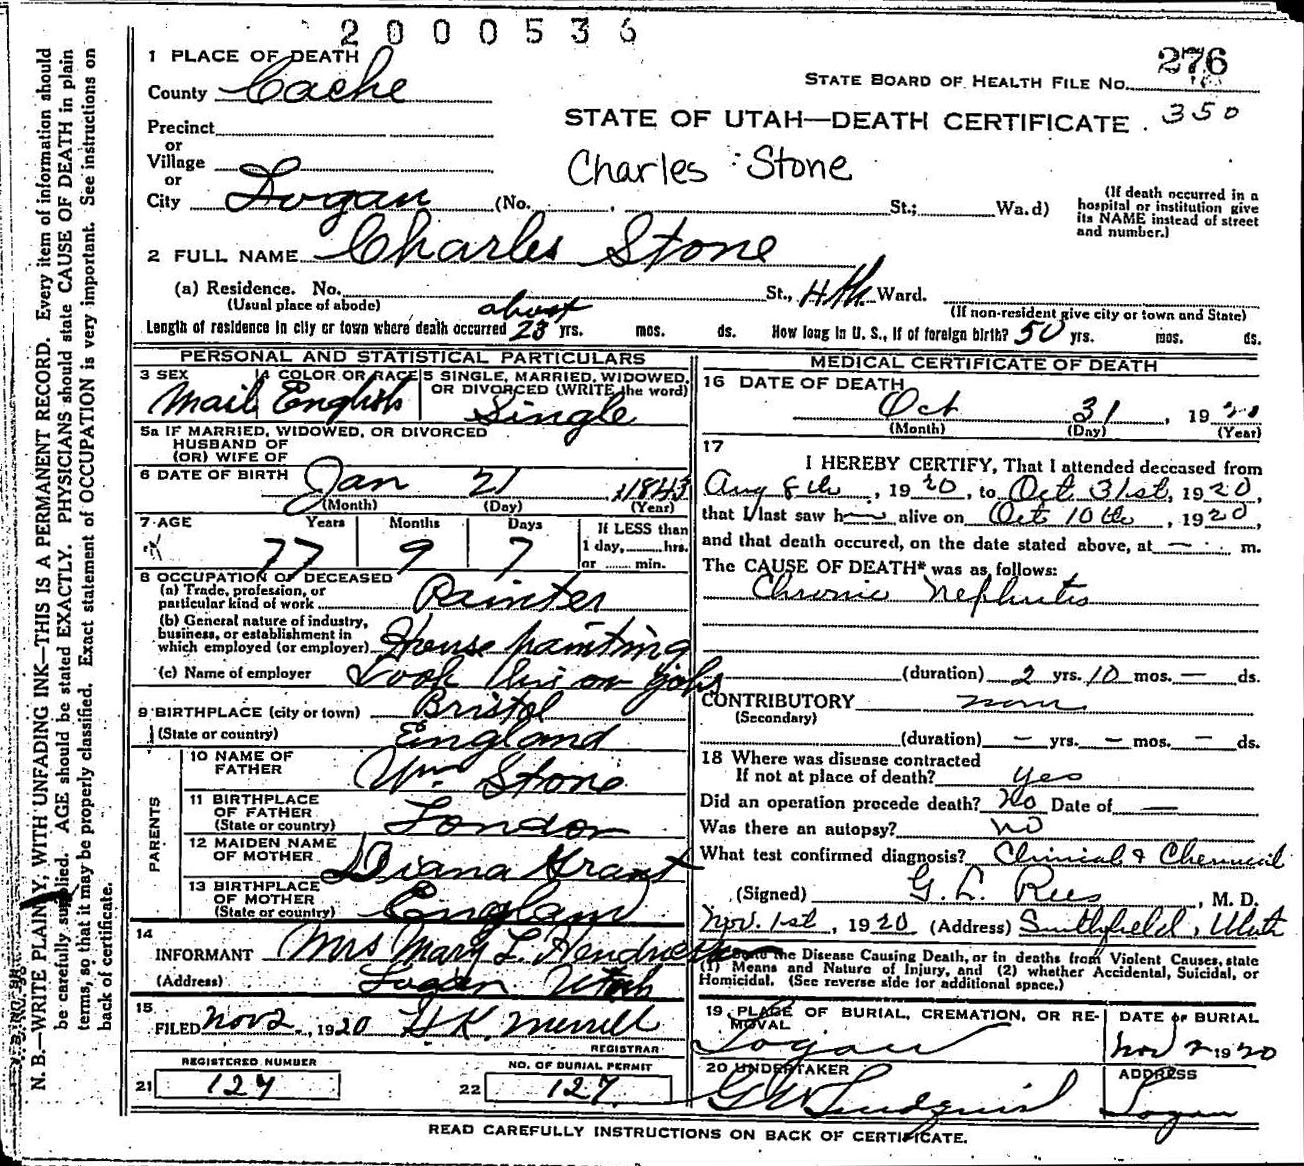 2000536
1 PLACE OF DEATH
County Cache
STATE BOARD OF HEALTH FILE No. 276
350
Precinct
or
Village
or
City Logan (No. , St.; Wa.d)
STATE OF UTAH—DEATH CERTIFICATE
Charles Stone
(If death occurred in a
hospital or institution give
its NAME instead of street
and number.)
2 FULL NAME Charles Stone
(a) Residence. No. St., 4th Ward.
(Usual place of abode)
(If non-resident give city or town and State)
Length of residence in city or town where death occurred about 23 yrs. mos. ds. How long in U. S., if of foreign birth? 50 yrs. mos. ds.
PERSONAL AND STATISTICAL PARTICULARS
3 SEX 4 COLOR OR RACE 5 SINGLE, MARRIED, WIDOWED,
OR DIVORCED (WRITE the word)
Mail English Single
5a IF MARRIED, WIDOWED, OR DIVORCED
HUSBAND OF
(OR) WIFE OF
6 DATE OF BIRTH Jan 21 1843
(Month) (Day) (Year)
7 AGE Years Months Days If LESS than
77 9 7 1 day, hrs.
or min.
8 OCCUPATION OF DECEASED
(a) Trade, profession, or
particular kind of work Painter
(b) General nature of industry,
business, or establishment in
which employed (or employer) House painting
(c) Name of employer Took his on jobs
9 BIRTHPLACE (city or town) Bristol
(State or country) England
PARENTS
10 NAME OF
FATHER Wm Stone
11 BIRTHPLACE
OF FATHER
(State or country) London
12 MAIDEN NAME
OF MOTHER Diana Grant
13 BIRTHPLACE
OF MOTHER
(State or country) England
14
INFORMANT Mrs Mary L. Hendricks
(Address) Logan Utah
15
FILED Nov 2, 1920 H K Merrill
REGISTRAR
REGISTERED NUMBER NO. OF BURIAL PERMIT
21 127 22 127
MEDICAL CERTIFICATE OF DEATH
16 DATE OF DEATH
Oct 31, 1920
(Month) (Day) (Year)
17
I HEREBY CERTIFY, That I attended deceased from
Aug 8th, 1920, to Oct 31st, 1920,
that I last saw h alive on Oct 10th, 1920,
and that death occured, on the date stated above, at — m.
The CAUSE OF DEATH* was as follows:
Chronic Nephritis
(duration) 2 yrs. 10 mos. — ds.
CONTRIBUTORY none
(Secondary)
(duration) — yrs. — mos. — ds.
18 Where was disease contracted
If not at place of death? yes
Did an operation precede death? No Date of —
Was there an autopsy? no
What test confirmed diagnosis? Clinical & Chemical
(Signed) G. L. Rees, M. D.
Nov. 1st, 1920 (Address) Smithfield, Utah
the Disease Causing Death, or in deaths from Violent Causes, state
(1) Means and Nature of Injury, and (2) whether Accidental, Suicidal, or
Homicidal. (See reverse side for additional space.)
19 PLACE OF BURIAL, CREMATION, OR RE-
MOVAL DATE OF BURIAL
Logan Nov 2 1920
20 UNDERTAKER ADDRESS
G W Lindquist Logan
READ CAREFULLY INSTRUCTIONS ON BACK OF CERTIFICATE.
N. B.—WRITE PLAINLY, WITH UNFADING INK—THIS IS A PERMANENT RECORD. Every item of information should
be carefully supplied. AGE should be stated EXACTLY. PHYSICIANS should state CAUSE OF DEATH in plain
terms, so that it may be properly classified. Exact statement of OCCUPATION is very important. See instructions on
back of certificate.